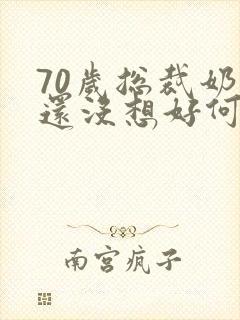 70歲總裁奶
還沒想好何
南宮瘋子